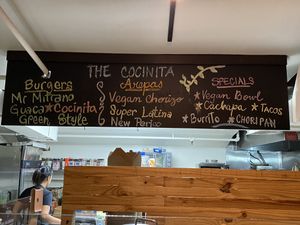 THE COCINITA
Burgers
Mr Mitrano
Guaca★Cocinita
Green Style
Arepas
Vegan Chorizo
Super Latina
New Paris
SPECIALS
★Vegan Bowl
★Cachapa ★TACOS
★Burrito ★CHORIPAN